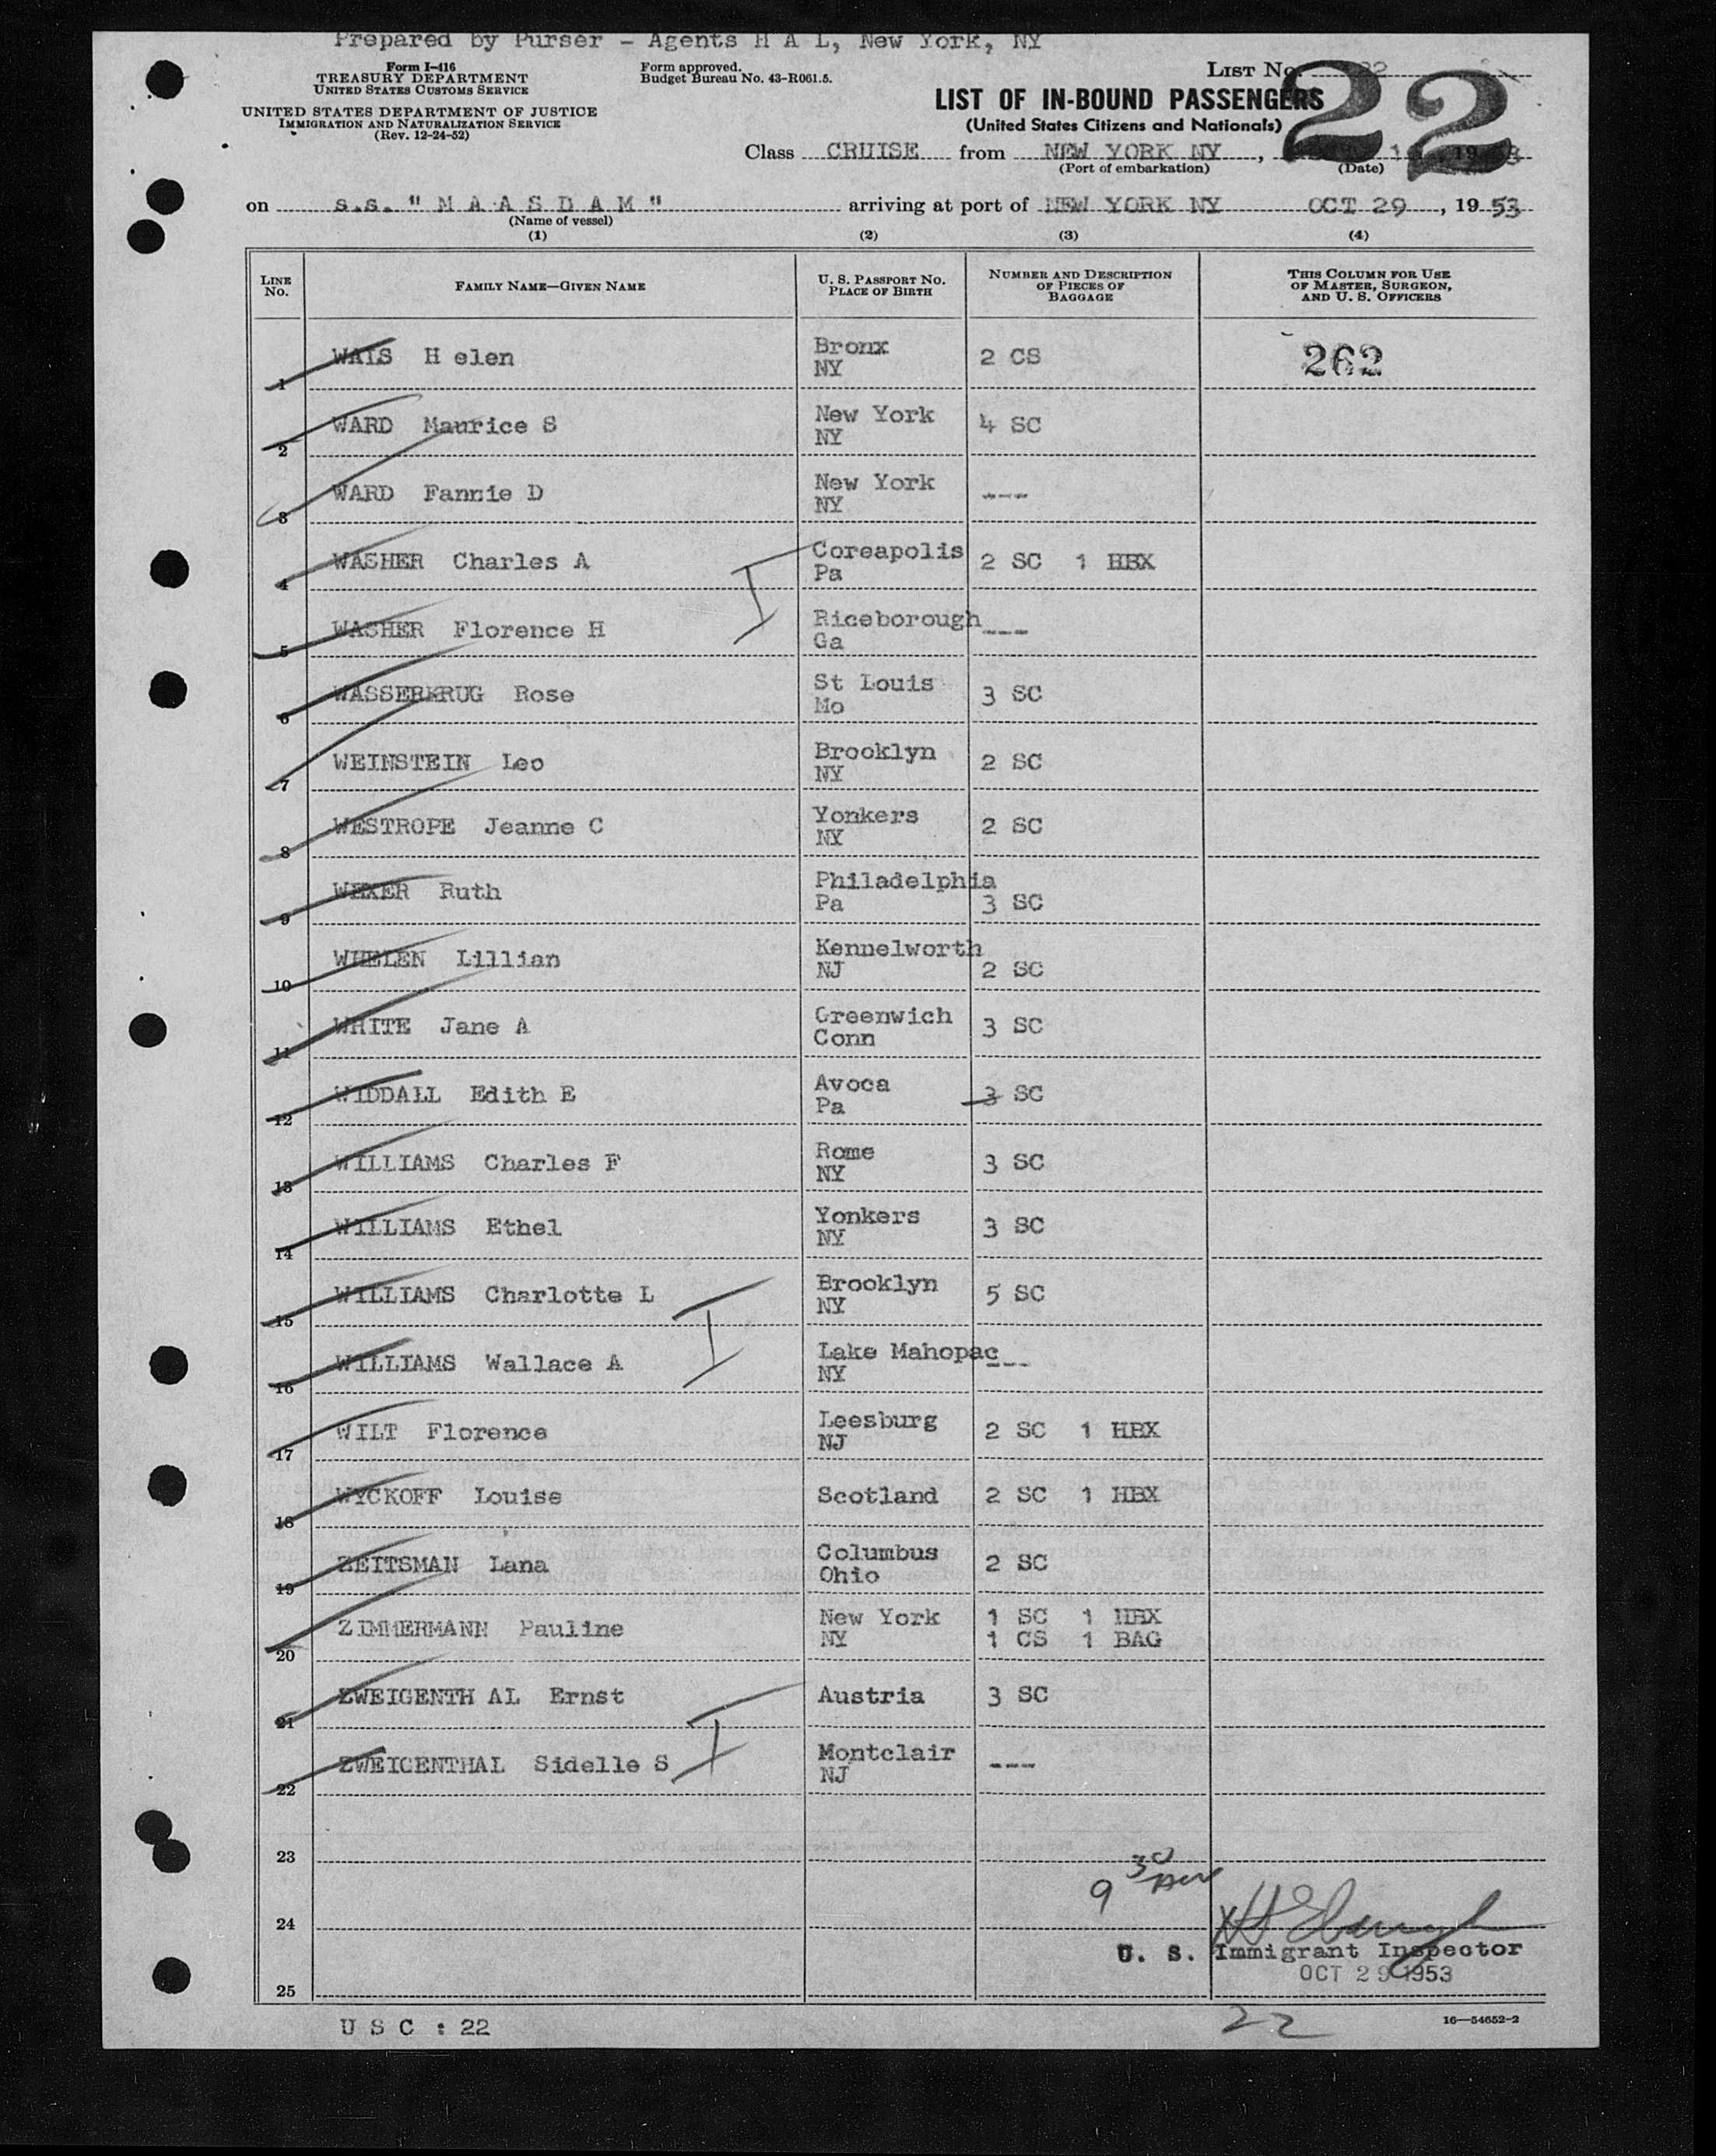 Prepared by Purser - Agents H A L, New York, NY
Form I-416
TREASURY DEPARTMENT
UNITED STATES CUSTOMS SERVICE
UNITED STATES DEPARTMENT OF JUSTICE
IMMIGRATION AND NATURALIZATION SERVICE
(Rev. 12-24-52)
Form approved.
Budget Bureau No. 43-R061.5.
LIST No. 22
22
LIST OF IN-BOUND PASSENGERS
(United States Citizens and Nationals)
Class CRUISE from NEW YORK NY, 19
(Port of embarkation) (Date)
on s.s. "M A A S D A M" arriving at port of NEW YORK NY OCT 29, 1953
(Name of vessel)
(1) (2) (3) (4)
LINE No. FAMILY NAME—GIVEN NAME U. S. PASSPORT NO. PLACE OF BIRTH NUMBER AND DESCRIPTION OF PIECES OF BAGGAGE THIS COLUMN FOR USE OF MASTER, SURGEON, AND U. S. OFFICERS
1 WAIS H elen Bronx NY 2 CS 262
2 WARD Maurice S New York NY 4 SC
3 WARD Fannie D New York NY ---
4 WASHER Charles A I Coreapolis Pa 2 SC 1 HBX
5 WASHER Florence H Riceborough Ga ---
6 WASSERKRUG Rose St Louis Mo 3 SC
7 WEINSTEIN Leo Brooklyn NY 2 SC
8 WESTROPE Jeanne C Yonkers NY 2 SC
9 WEXER Ruth Philadelphia Pa 3 SC
10 WHELEN Lillian Kennelworth NJ 2 SC
11 WHITE Jane A Greenwich Conn 3 SC
12 WIDDALL Edith E Avoca Pa 3 SC
13 WILLIAMS Charles F Rome NY 3 SC
14 WILLIAMS Ethel Yonkers NY 3 SC
15 WILLIAMS Charlotte L I Brooklyn NY 5 SC
16 WILLIAMS Wallace A Lake Mahopac NY ---
17 WILT Florence Leesburg NJ 2 SC 1 HBX
18 WYCKOFF Louise Scotland 2 SC 1 HBX
19 ZEITSMAN Lana Columbus Ohio 2 SC
20 ZIMMERMANN Pauline New York NY 1 SC 1 HBX 1 CS 1 BAG
21 ZWEIGENTH AL Ernst I Austria 3 SC
22 ZWEIGENTHAL Sidelle S Montclair NJ ---
23
9 30 AM
24
U. S. Immigrant Inspector
OCT 29 1953
25
U S C : 22
22
16—54652-2